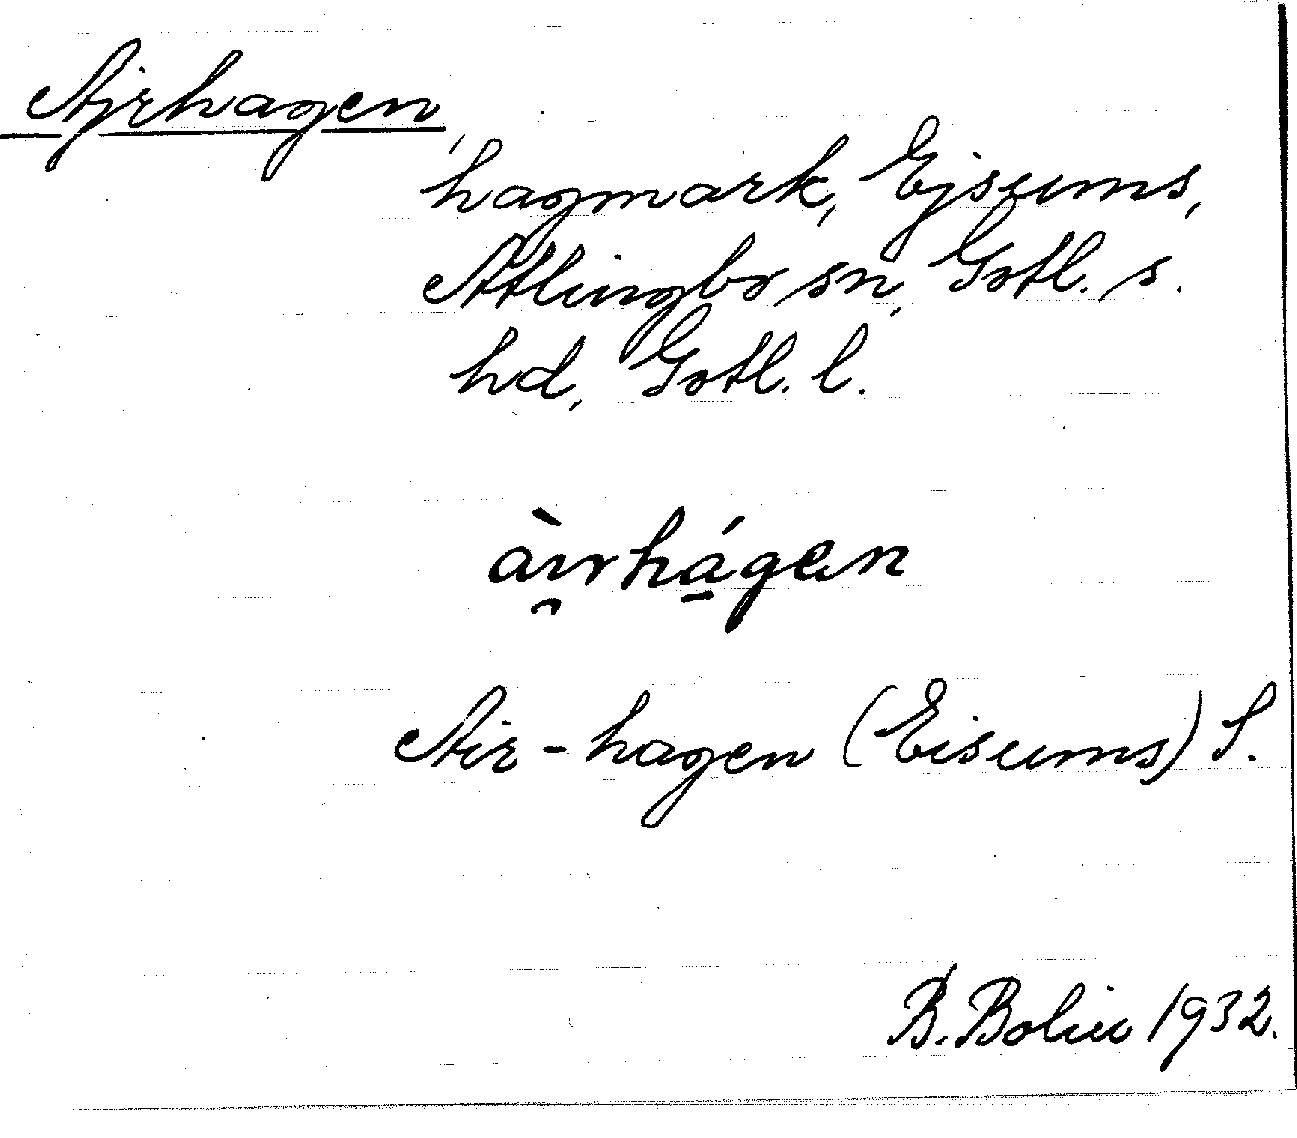 Ajrhagen,
hagmark, Ejsums,
Atlingbo sn, Gotl. s.
hd, Gotl. l.
àirhágen
Air-hagen (Eisums) S.
B. Bolin 1932.